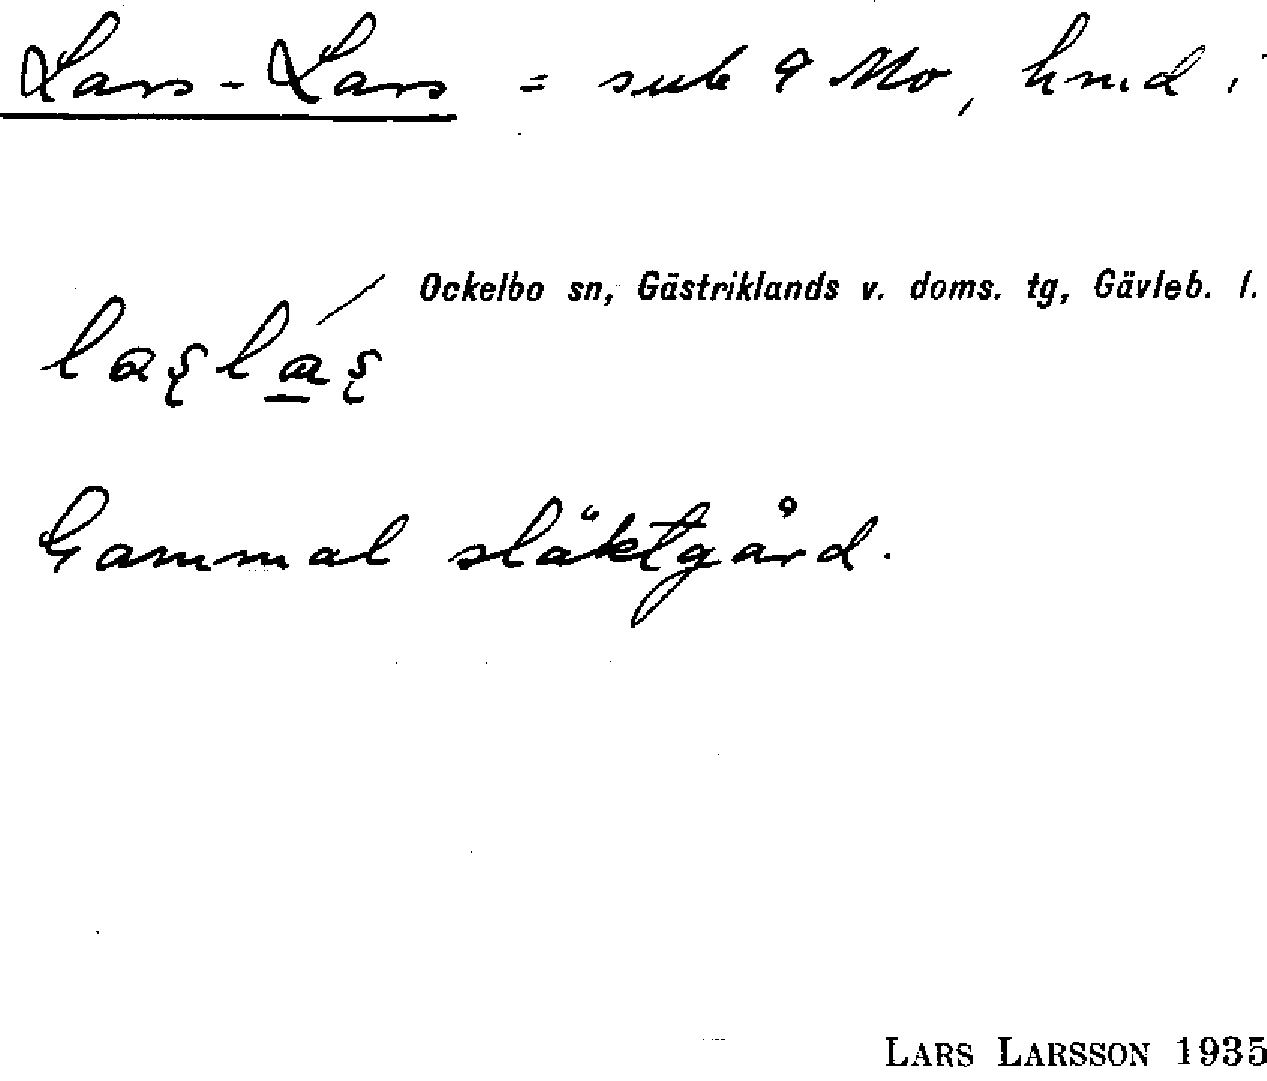 Lars-Lars = sub 9 Mo, hmd i
Ockelbo sn, Gästriklands v. doms. tg, Gävleb. l.
laşlá̱ş
Gammal släktgård.
LARS LARSSON 1935